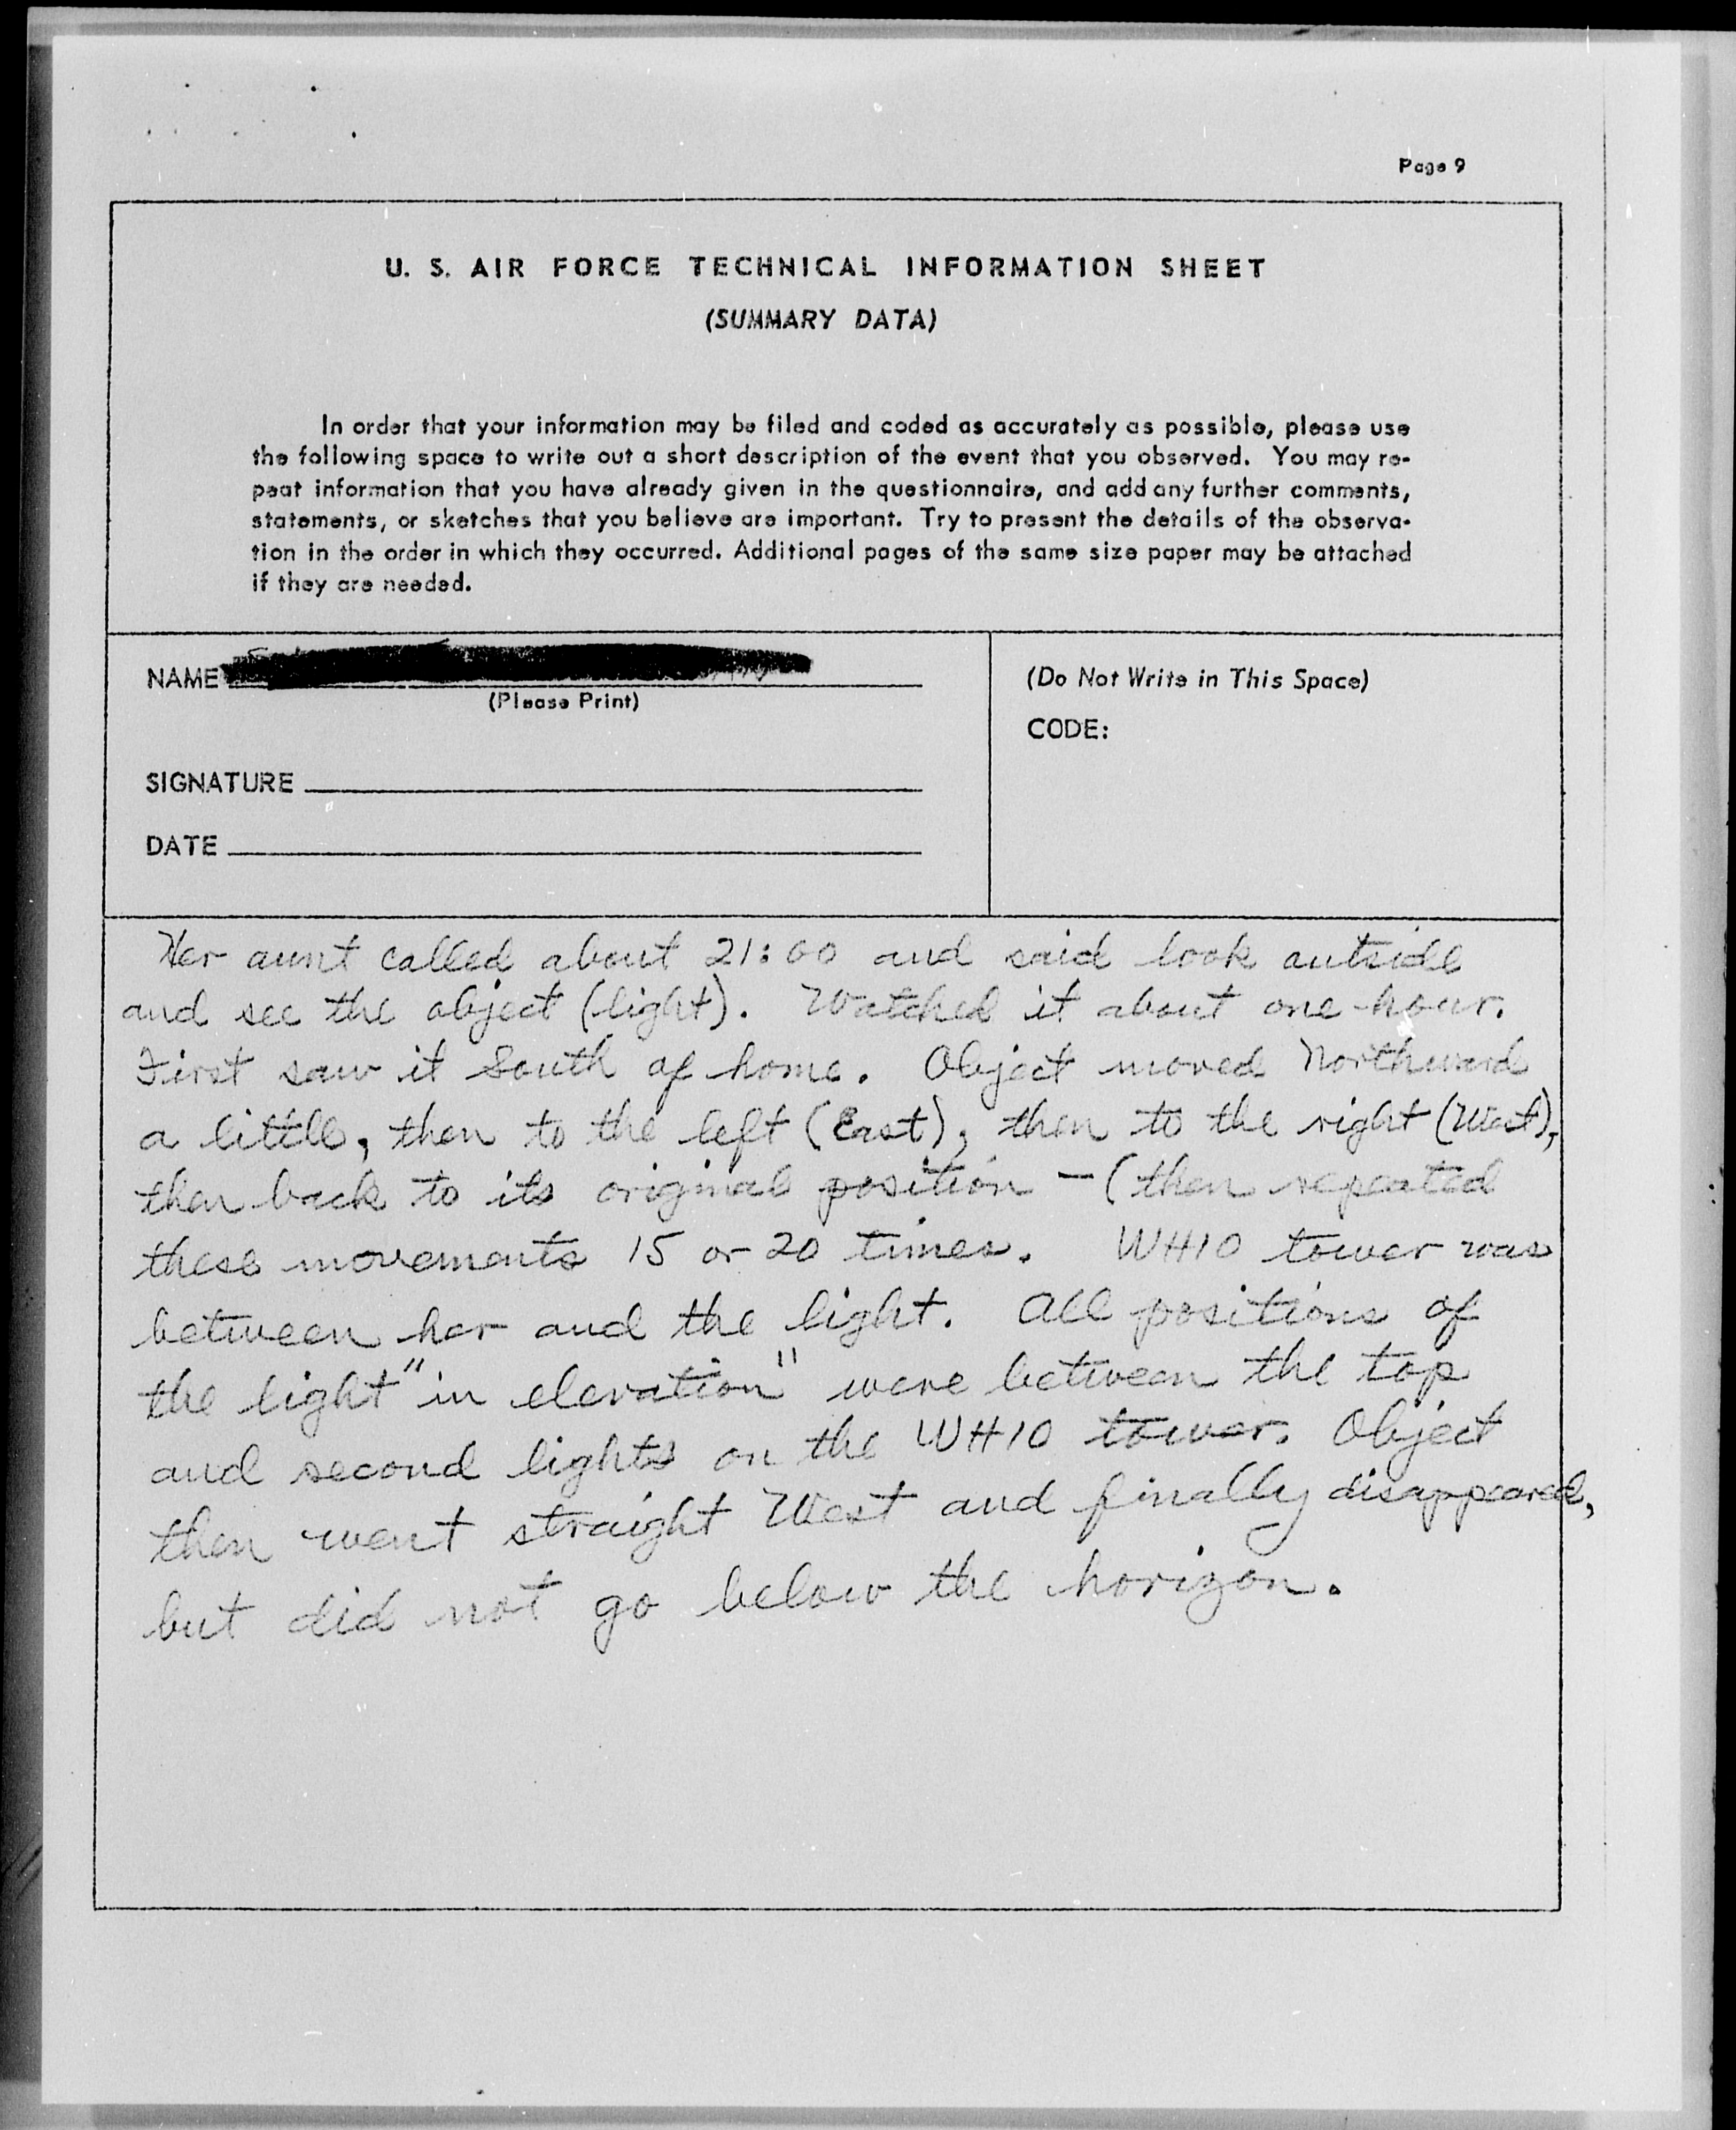 Page 9
U. S. AIR FORCE TECHNICAL INFORMATION SHEET
(SUMMARY DATA)
In order that your information may be filed and coded as accurately as possible, please use
the following space to write out a short description of the event that you observed. You may re-
peat information that you have already given in the questionnaire, and add any further comments,
statements, or sketches that you believe are important. Try to present the details of the observa-
tion in the order in which they occurred. Additional pages of the same size paper may be attached
if they are needed.
NAME
(Please Print)
SIGNATURE
DATE
(Do Not Write in This Space)
CODE:
Her aunt called about 21:00 and said look outside
and see the object (light). Watched it about one hour.
First saw it South of home. Object moved Northward
a little, then to the left (East), then to the right (West),
then back to its original position - (then repeated
these movements 15 or 20 times. WHIO tower was
between her and the light. All positions of
the light "in elevation" were between the top
and second lights on the WHIO tower. Object
then went straight West and finally disappeared,
but did not go below the horizon.